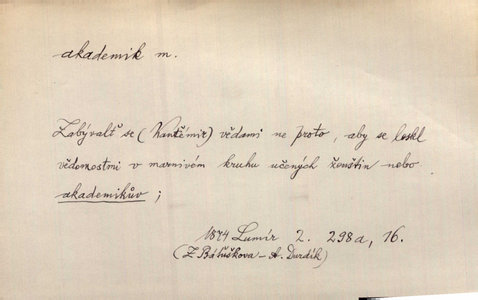 akademik m.
Zabývalť se (Kantěmir) vědami ne proto, aby se leskl
vědomostmi v marnivém kruhu učených ženštin nebo
akademikův;
1874 Lumír 2. 298a, 16.
(Z Báťuškova - A. Durdík)